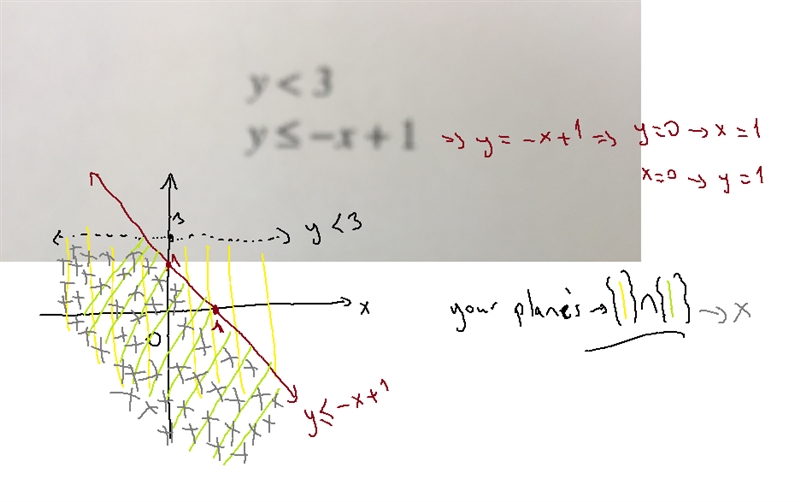 y < 3
y ≤ -x + 1 => y = -x+1 => y=0 → x = 1
x=0 → y = 1
3
y < 3
1
x
1
0
your plane's → { | } ∩ { | } → x
y ≤ -x+1